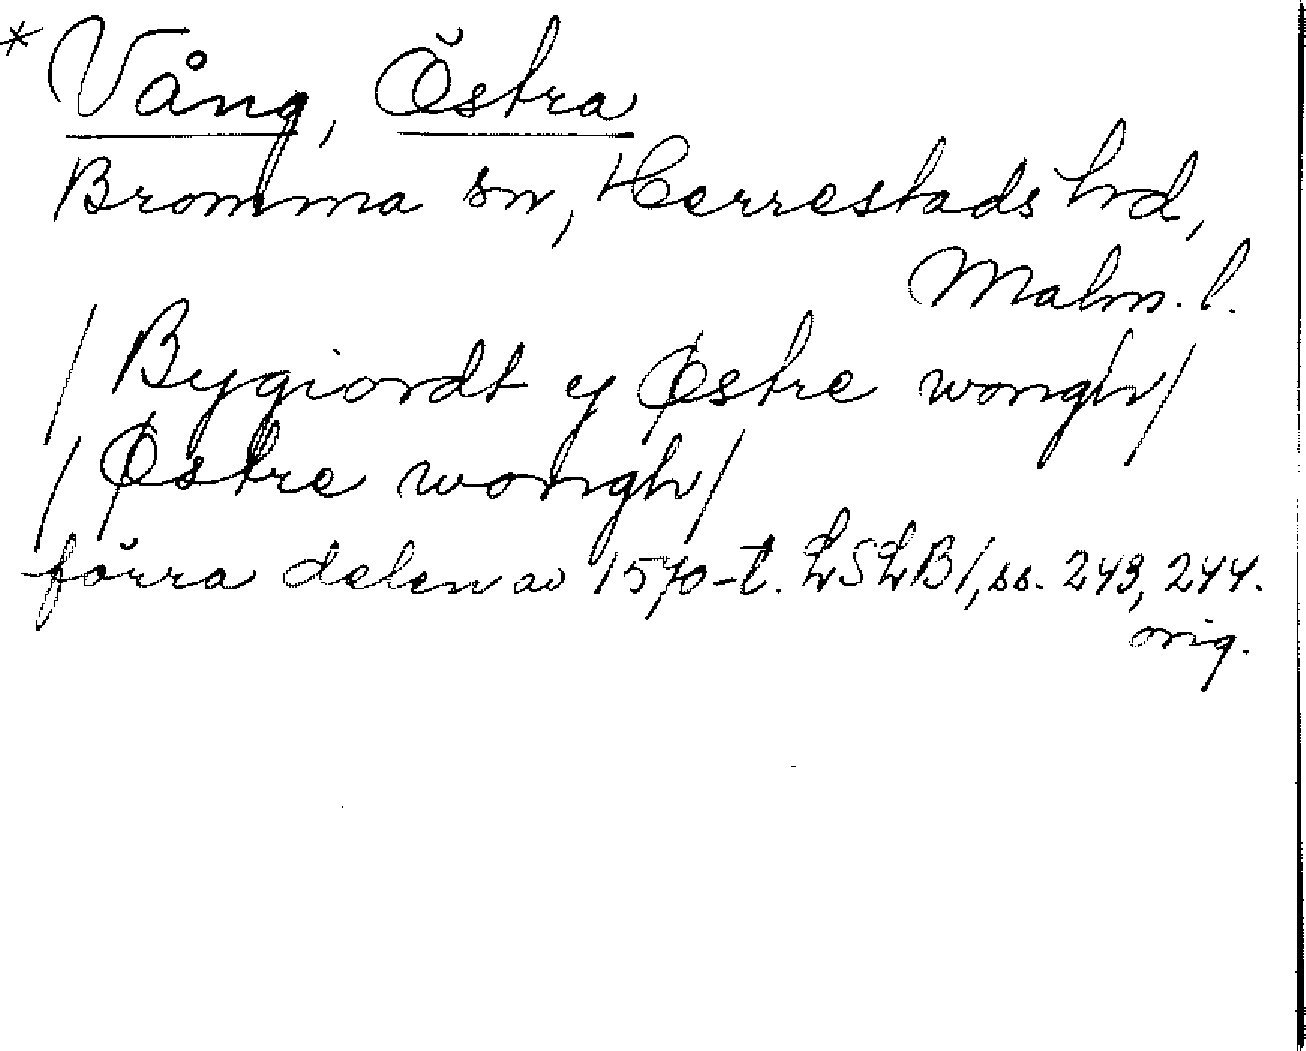 * Vång, Östra
Bromma sn, Herrestads hd,
Malm. l.
/ Bygiordt y Østre wongh /
/ Østre wongh /
förra delen av 1570-t. LSLB 1, ss. 243, 244.
orig.